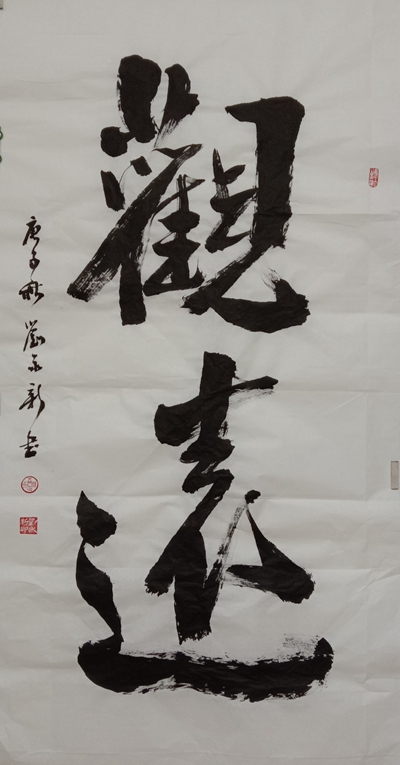 觀遠
庚子秋 劉永新書